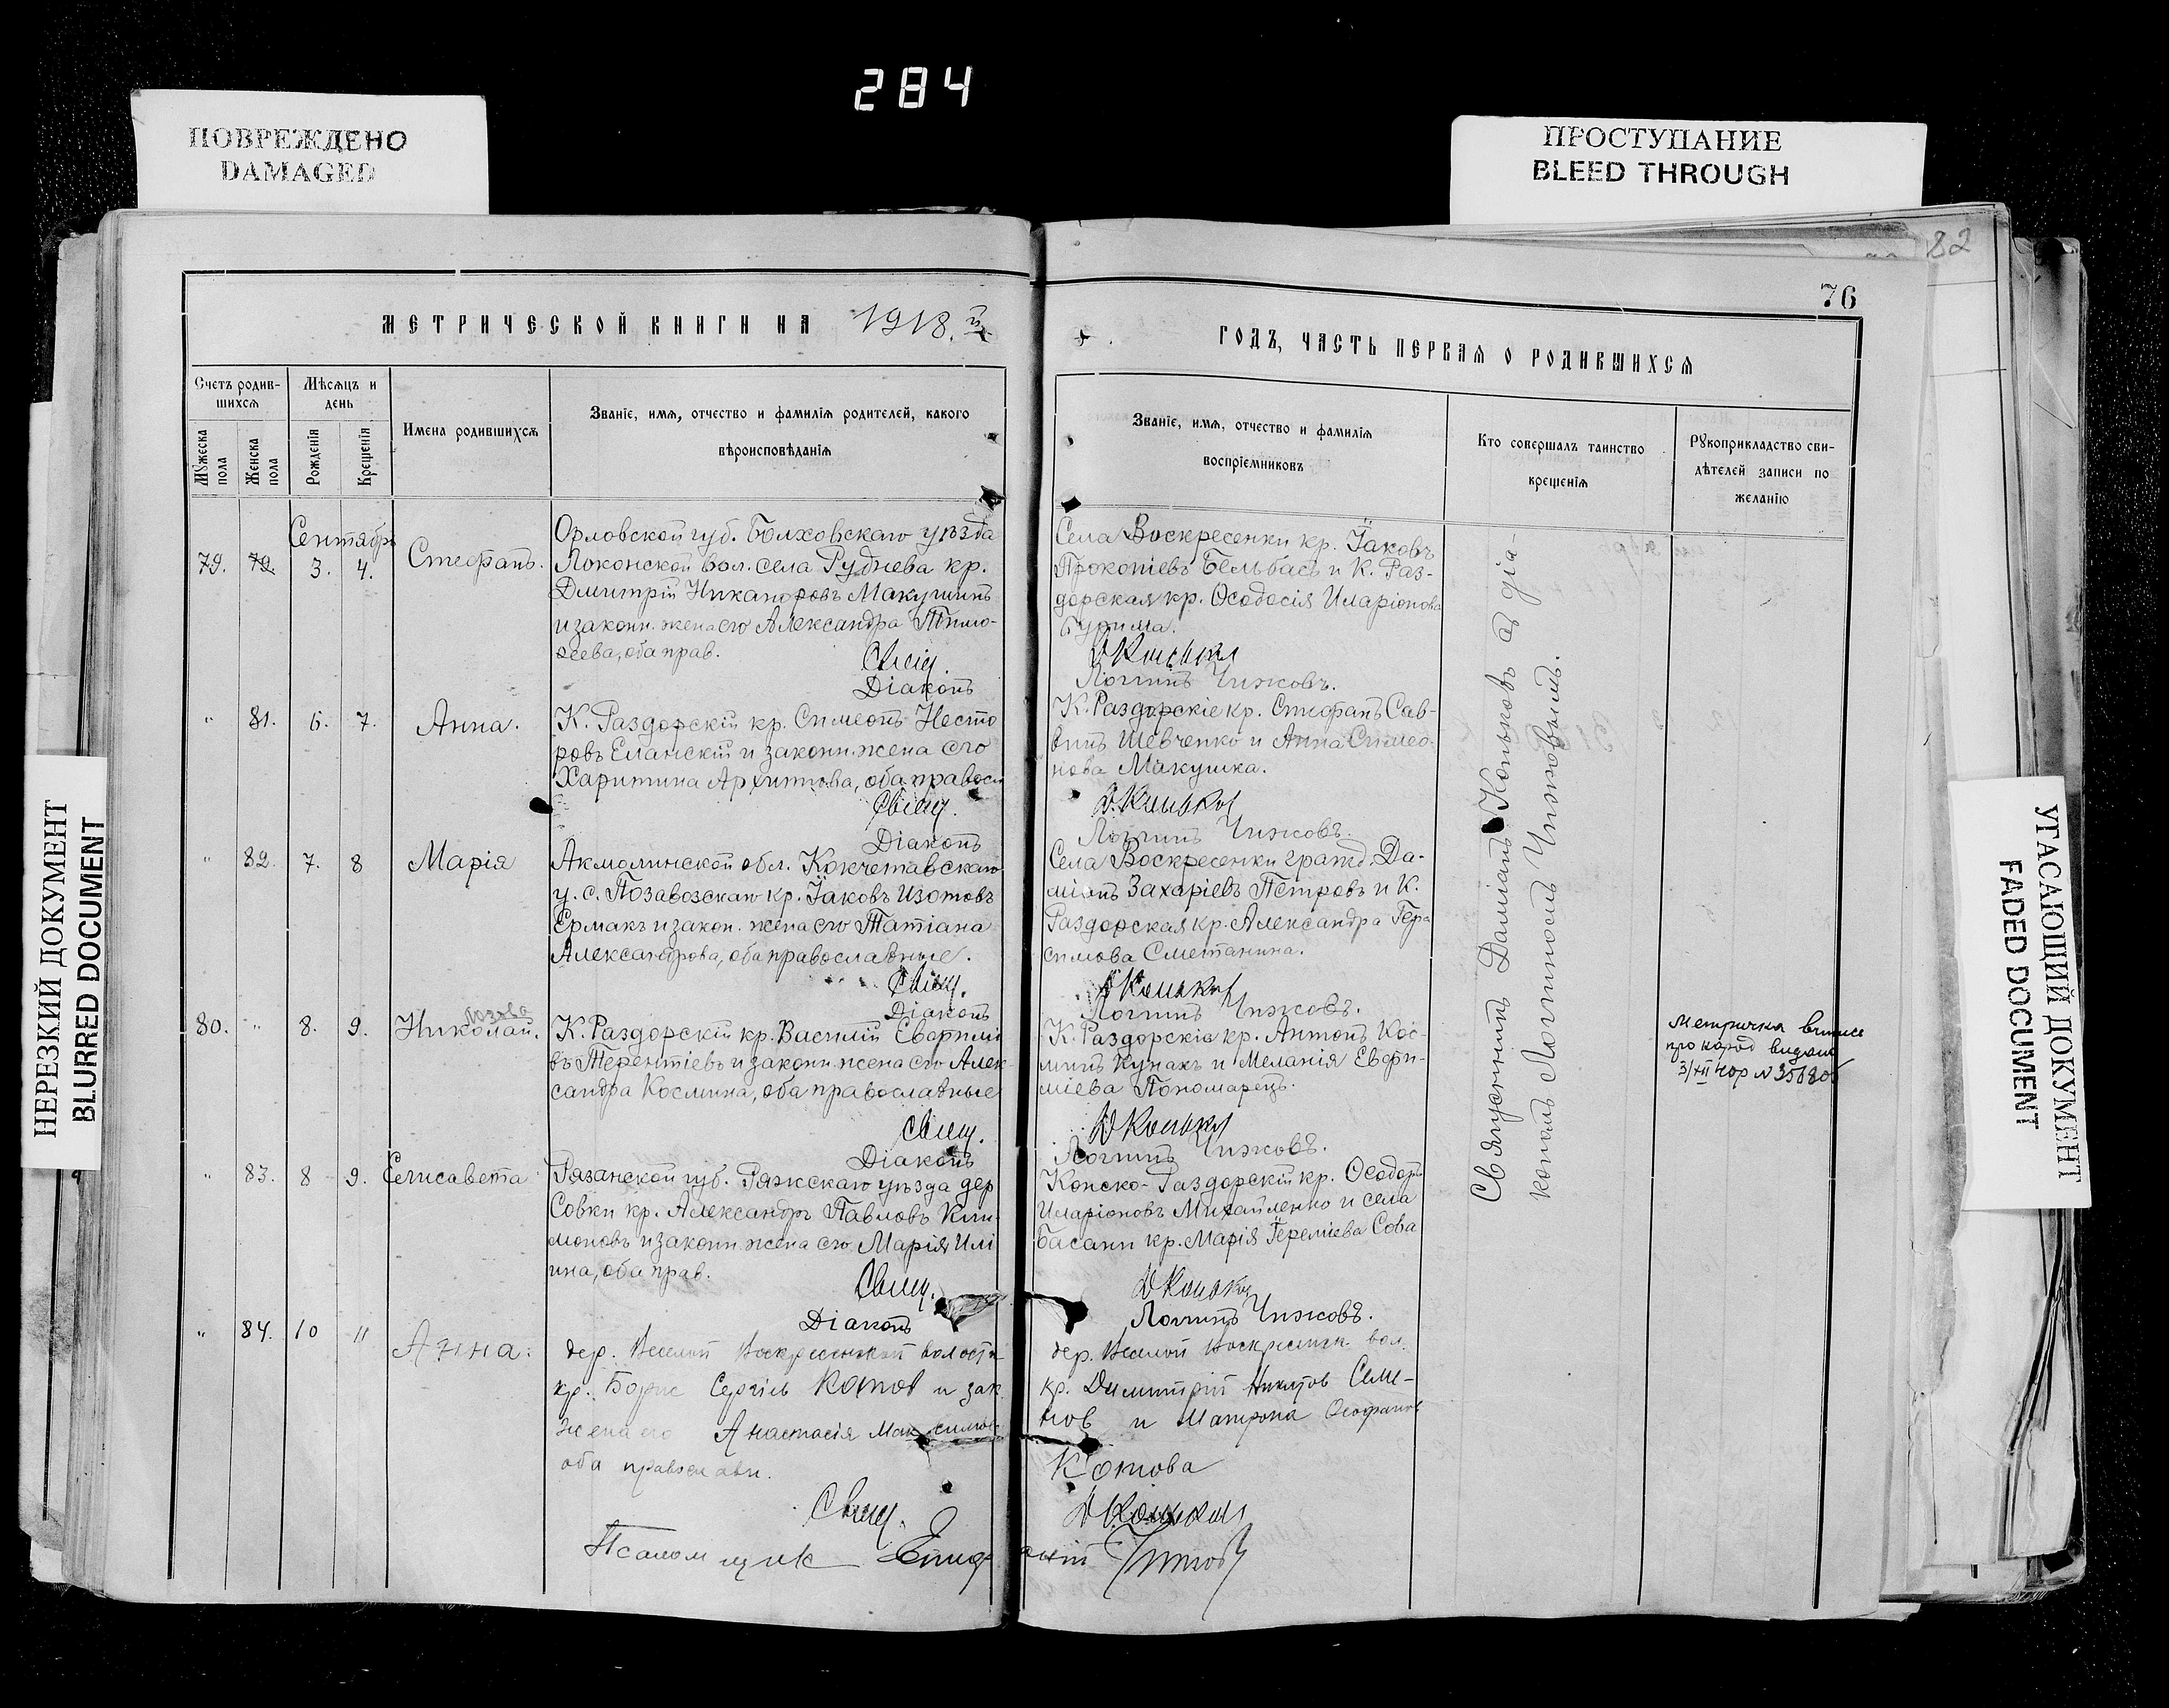 284
ПОВРЕЖДЕНО
DAMAGED
ПРОСТУПАНИЕ
BLEED THROUGH
НЕРЕЗКИЙ ДОКУМЕНТ
BLURRED DOCUMENT
УГАСАЮЩИЙ ДОКУМЕНТ
FADED DOCUMENT
82
76
МЕТРИЧЕСКОЙ КНИГИ НА 1918.
ГОДЪ, ЧАСТЬ ПЕРВАЯ О РОДИВШИХСЯ
Счетъ родив-
шихся
Мужеска
пола
Женска
пола
Мѣсяцъ и
день
Рожденія
Крещенія
Имена родившихся
Званіе, имя, отчество и фамилія родителей, какого
вѣроисповѣданія
Званіе, имя, отчество и фамилія
воспріемниковъ
Кто совершалъ таинство
крещенія
Рукоприкладство сви-
дѣтелей записи по
желанію
Сентябрь
79. 79. 3. 4. Стефанъ.
Орловской губ. Болховскаго уѣзда
Локонской вол. села Руднева кр.
Димитрій Никаноровъ Макушинъ
и законн. жена его Александра Тимо-
ѳеева, оба прав.
Свящ.
Діаконъ
Села Воскресенки кр. Іаковъ
Прокопіевъ Бельбасъ и К. Раз-
дорская кр. Ѳеодосія Иларіонова
Бурима.
Д Коньков
Логгинъ Чижовъ.
" 81. 6. 7. Анна.
К. Раздорскій кр. Симеонъ Несто
ровъ Еланскій и законн. жена его
Харитина Архипова, оба правосл
Свящ.
Діаконъ
К. Раздорскіе кр. Стефанъ Сав-
винъ Шевченко и Анна Симео-
нова Макушка.
Д. Коньков
Логгинъ Чижовъ.
" 82. 7. 8 Марія
Акмолинской обл. Кокчетавскаго
у. с. Позавозскаго кр. Іаковъ Изотовъ
Ермакъ и закон. жена его Татіана
Александрова, оба православные.
Свящ.
Діаконъ
Села Воскресенки гражд. Да-
міанъ Захаріевъ Петровъ и К.
Раздорская кр. Александра Гера
симова Сметанина.
Д Коньков
Логгинъ Чижовъ.
80. " 8. 9. Николай.
К. Раздорскій кр. Василій Евфимі
въ Терентіевъ и законн. жена его Алек-
сандра Космина, оба православные
Свящ.
Діаконъ
К. Раздорскіе кр. Антонъ Кос-
минъ Кунакъ и Меланія Евфи-
міева Пономарецъ.
Д Коньков
Логгинъ Чижовъ.
Метричка
про народ видана
3/XII
" 83. 8 9. Елисавета
Рязанской губ. Ряжскаго уѣзда дер
Совки кр. Александръ Павловъ Кли-
моновъ и законн жена его Марія Илі
ина, оба прав.
Свящ.
Діаконъ
Конско-Раздорскій кр. Ѳеодоръ
Иларіоновъ Михайленко и села
Басани кр. Марія Іереміева Сова
Д Коньков
Логгинъ Чижовъ.
" 84. 10 11 Анна.
дер. Веселой Воскресенской волости
кр. Борис Сергіев Котов и зак
жена его Анастасія Максимов
оба православн.
Свящ.
Псаломщик
дер. Веселой Воскресенк. вол.
кр. Димитрій Никитов Семе-
нов и Матрона Ѳеофанов
Котова
Д Коньков
Священникъ Даміанъ Коньковъ съ діа-
кономъ Логгиномъ Чижовымъ.